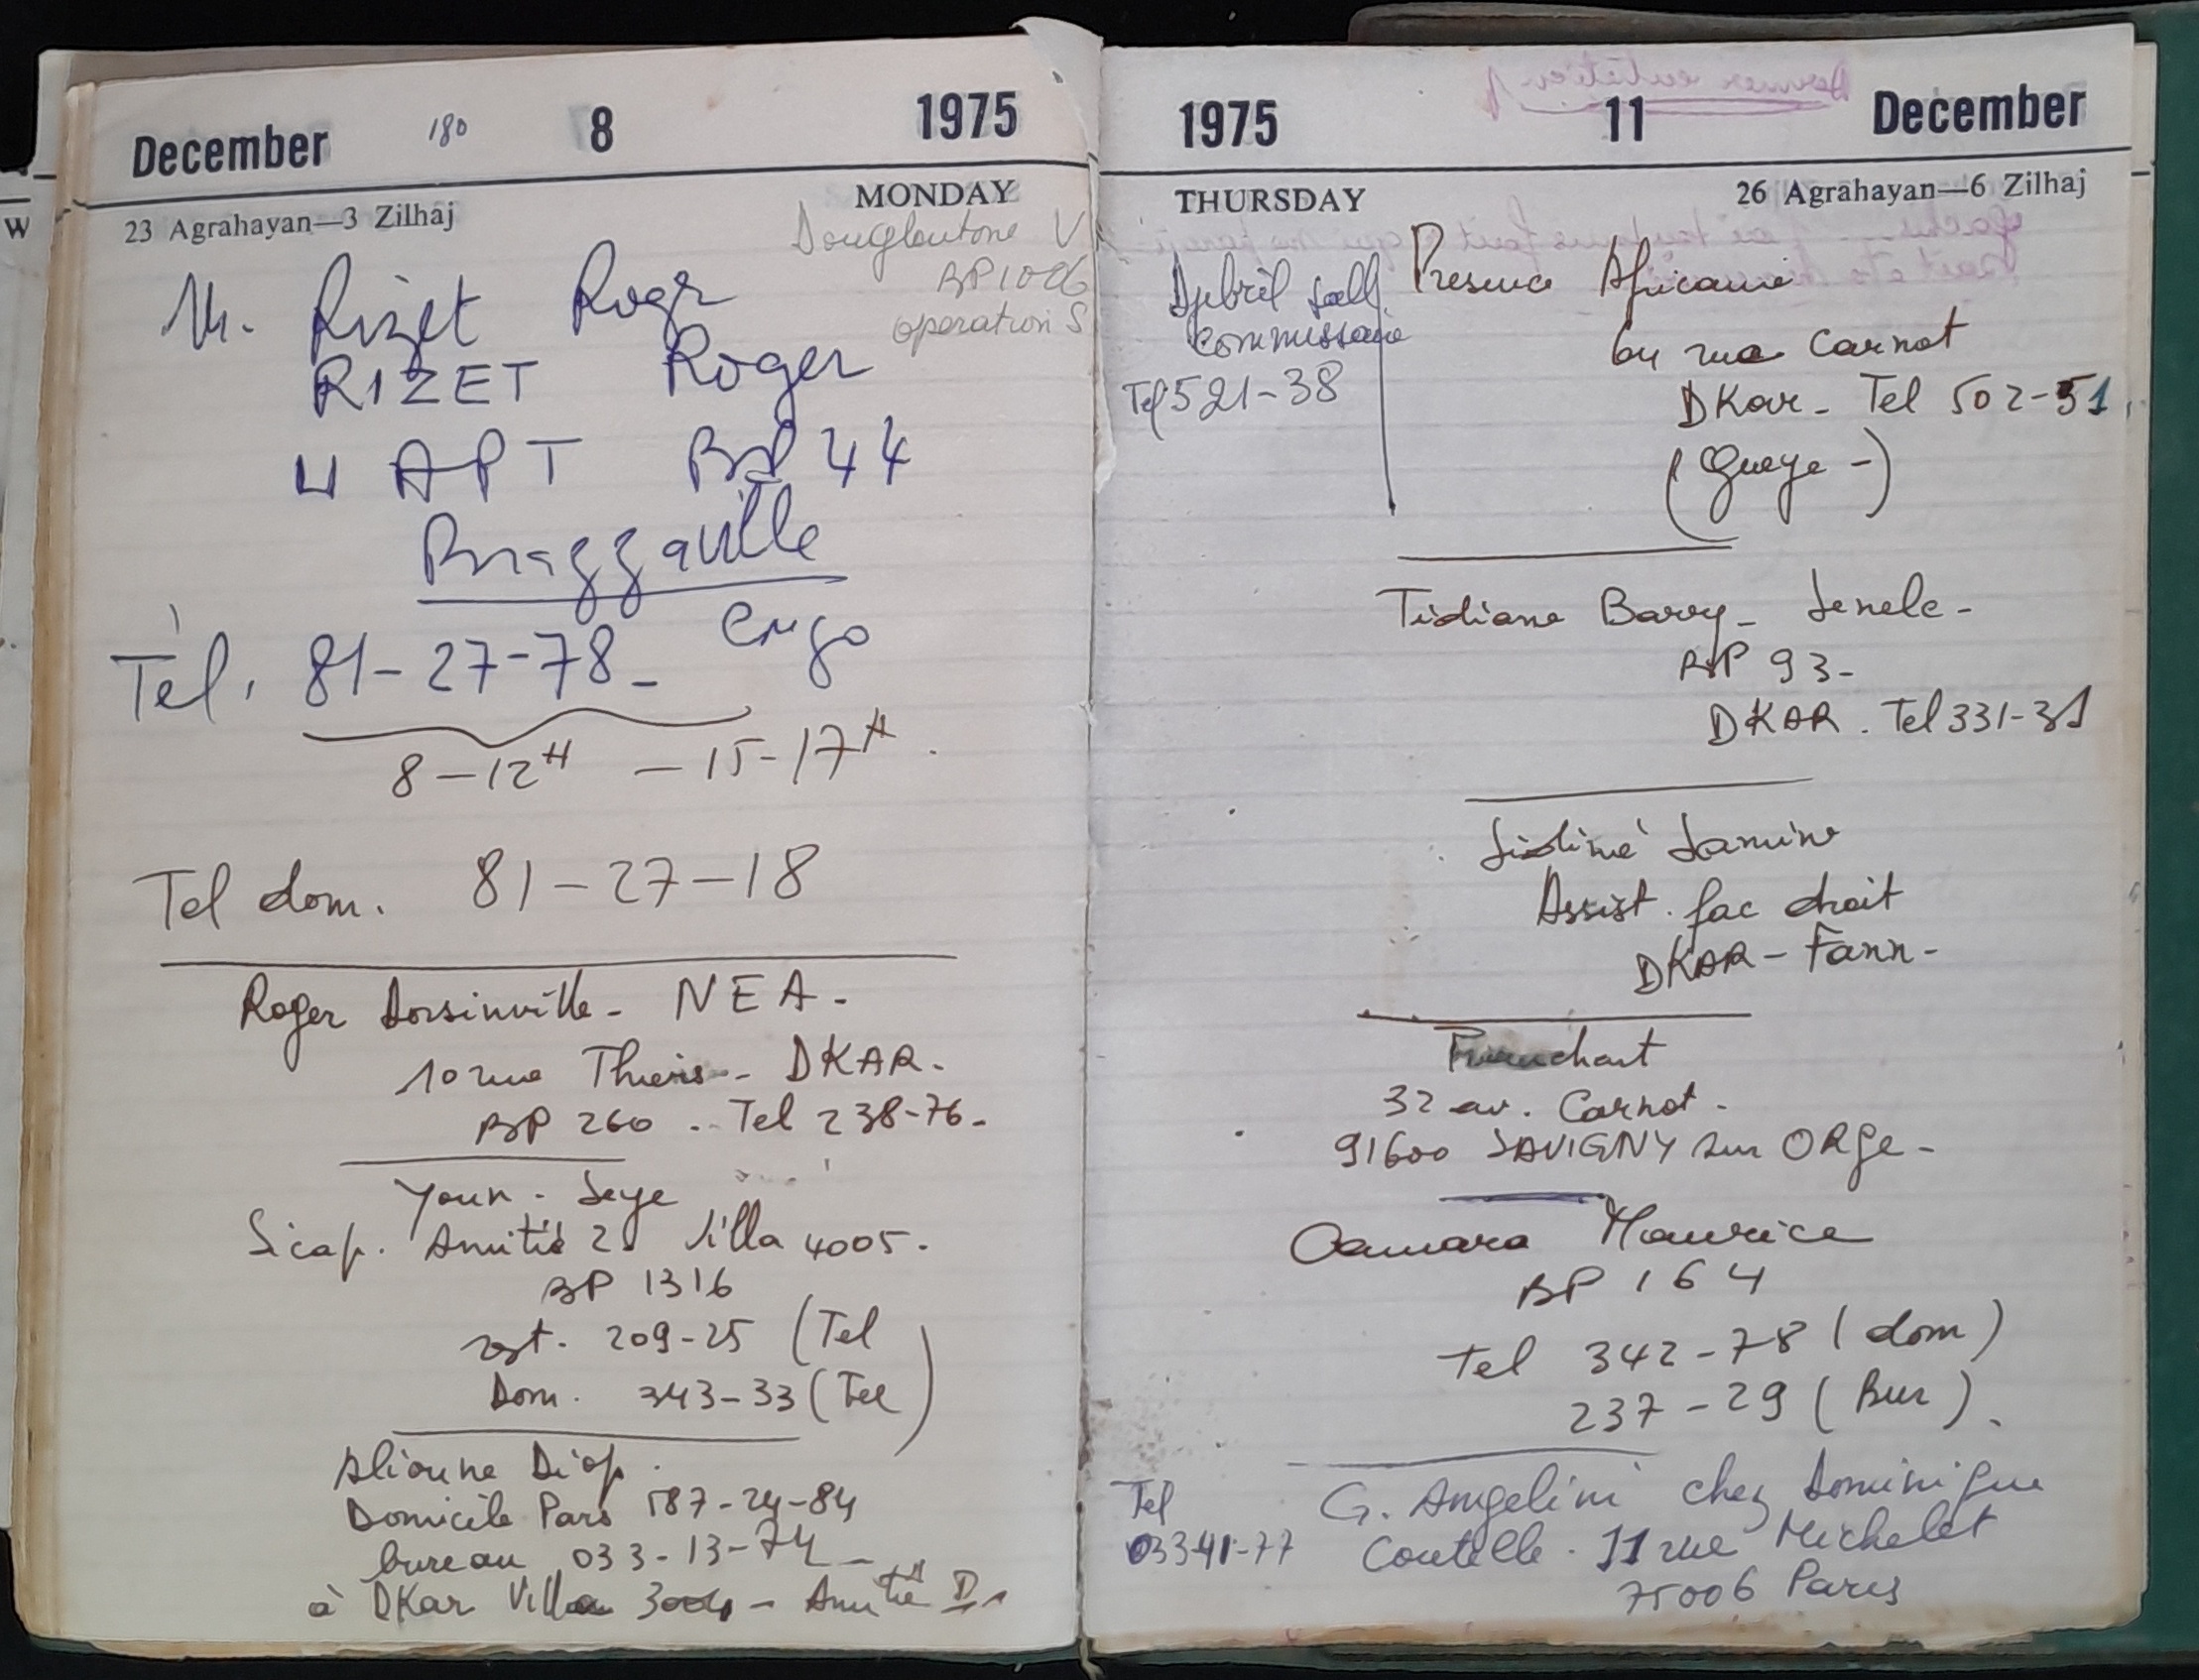 December 180 8 1975
MONDAY
23 Agrahayan—3 Zilhaj
V
BP 1026
operation S
M. Rizet Roger
RIZET Roger
4 APT BP 44
Brazzaville
Congo
Tél. 81-27-78-
8-12H - 15-17H.
Tel dom. 81-27-18
Roger Dorsinville - NEA -
10 rue Thiers - DKAR.
BP 260 .. Tel 238-76-
Youn - Seye
Sicap. Amitié 2. Villa 4005.
BP 1316
rest. 209-25 (Tel
Dom. 343-33 (Tel)
Alioune Diop.
Domicile Paris 587-24-84
bureau 033-13-74 -
à DKar Villa - Amitié II
1975 11 December
THURSDAY 26 Agrahayan—6 Zilhaj
Djibril Sall
Commissaire
Tel 521-38
Presence Africaine
64 rue Carnot
DKar - Tel 502-51
(Gueye -)
Tidiane Barry - Senelec -
BP 93-
DKAR. Tel 331-31
Sidimé Lamine
Assist. fac droit
DKAR - Fann -
32 av. Carnot -
91600 SAVIGNY sur ORge -
Camara Maurice
BP 164
Tel 342-78 (dom)
237-29 (Bur).
Tel
033-41-77
G. Angelini chez Dominique
Coutelle. 11 rue Michelet
75006 Paris